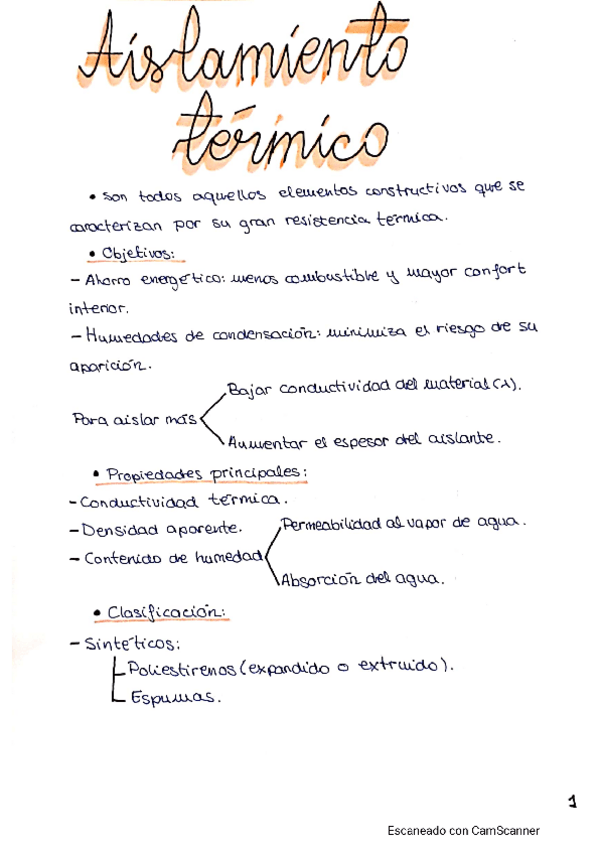 Aislamiento
térmico
• Son todos aquellos elementos constructivos que se
caracterizan por su gran resistencia térmica.
• Objetivos:
- Ahorro energético: menos combustible y mayor confort
interior.
- Humedades de condensación: minimiza el riesgo de su
aparición.
Bajar conductividad del material (λ).
Para aislar más
Aumentar el espesor del aislante.
• Propiedades principales:
- Conductividad térmica.
- Densidad aparente.
Permeabilidad al vapor de agua.
- Contenido de humedad
Absorción del agua.
• Clasificación:
- Sintéticos:
Poliestirenos (expandido o extruido).
Espumas.
1
Escaneado con CamScanner